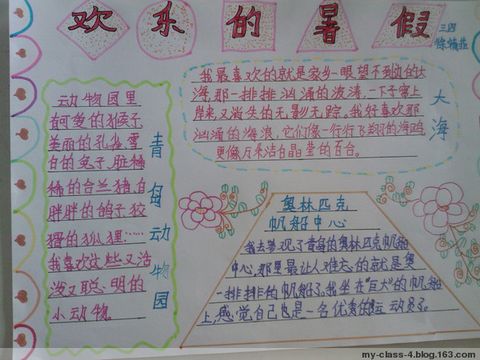 欢乐的暑假
三四
动物园里
有可爱的猴子
美丽的孔雀,雪
白的兔子,脏稀
稀的台兰猪,白
胖胖的鸽子,狡
猾的狐狸……
我喜欢这些又活
泼又聪明的
小动物。
青岛动物园
我最喜欢的就是家乡一眼望不到边的大
海,那一排排汹涌的波涛,一下子窜上
岸来,又消失的无影无踪。我好喜欢那
汹涌的海浪,它们像一行行飞翔的海鸥,
更像万朵洁白晶莹的百合。
大海
奥林匹克
帆船中心
我去参观了青岛的奥林匹克帆船
中心,那里最让人难忘的就是奥
一排排的帆船了。我坐在"巨大"的帆船
上,感觉自己也是一名优秀的运动员了。
my-class-4.blog.163.com